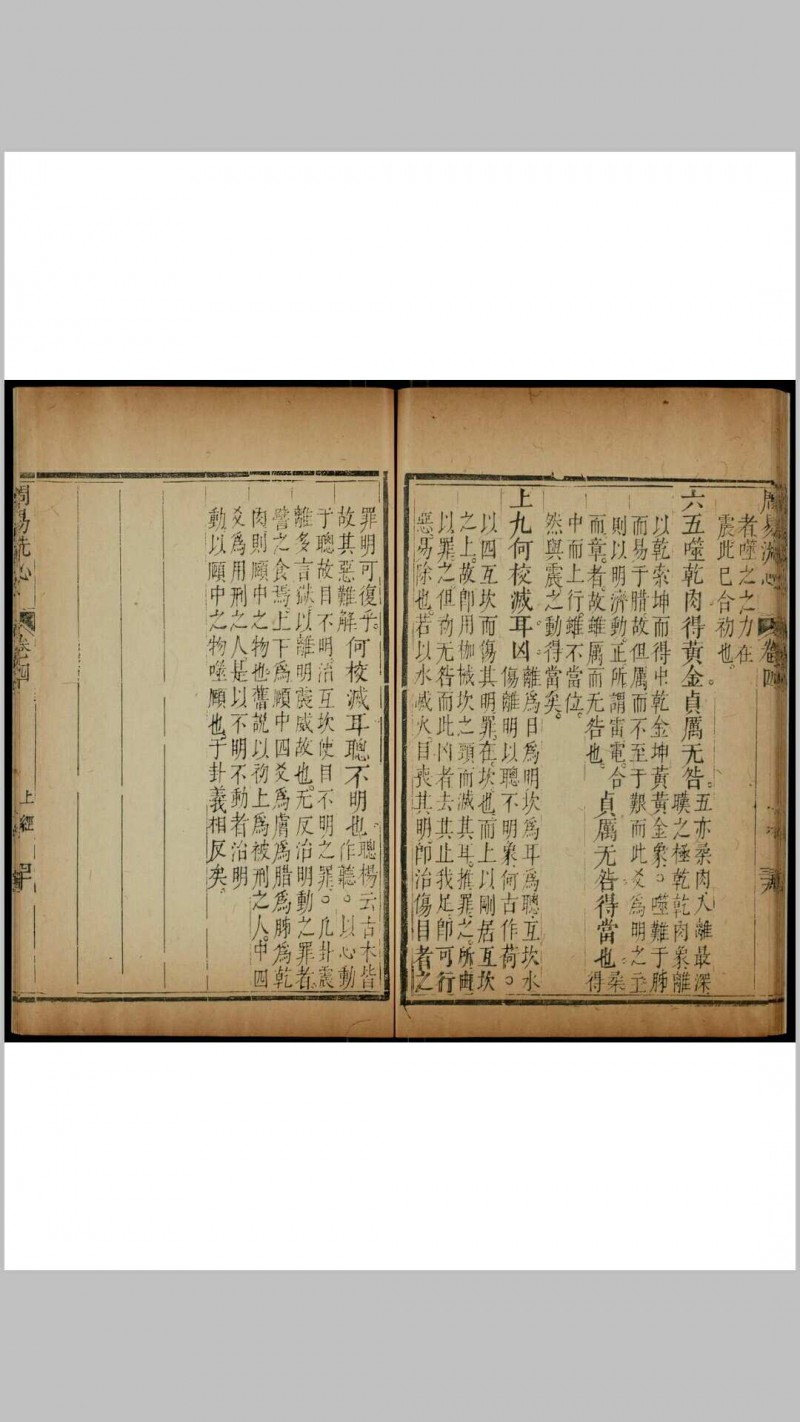 周易洗心 卷四
者噬之之力在
震此已合初也
六五噬乾肉得黃金貞厲无咎。五亦柔肉入離最深
暵之極乾乾肉象離
以乾索坤而得中乾金坤黃黃金象。噬難于胏
而易于腊故但厲而不至于艱而此爻爲明之主
則以明濟動正所謂雷電合
而章者故雖厲而无咎也。貞厲无咎得當也柔得
中而上行雖不當位
然與震之動得當矣。
上九何校滅耳凶離爲日爲明坎爲耳爲聰互坎水
傷離明以聰不明象何古作荷。
以四互坎而傷其明罪在坎也而上以剛居互坎
之上故卽用枷械坎之頸而滅其耳推罪之所由
以罪之但初无咎而此凶者去其止我足卽可行
惡易除也若以水滅火目喪其明卽治傷目者之
罪明可復乎。何校滅耳聰不明也聰楊云古本皆
故其惡難解 作聽。以心動
于聰故目不明治互坎使目不明之罪。凡卦震
離多言獄以離明震威故也无反治明動之罪者
譬之食焉上下爲頤中四爻爲膚爲腊爲胏爲乾
肉則頤中之物也舊說以初上爲被刑之人中四
爻爲用刑之人是以不明不動者治明
動以頤中之物噬頤也于卦義相反矣。
周易洗心 卷四 上經